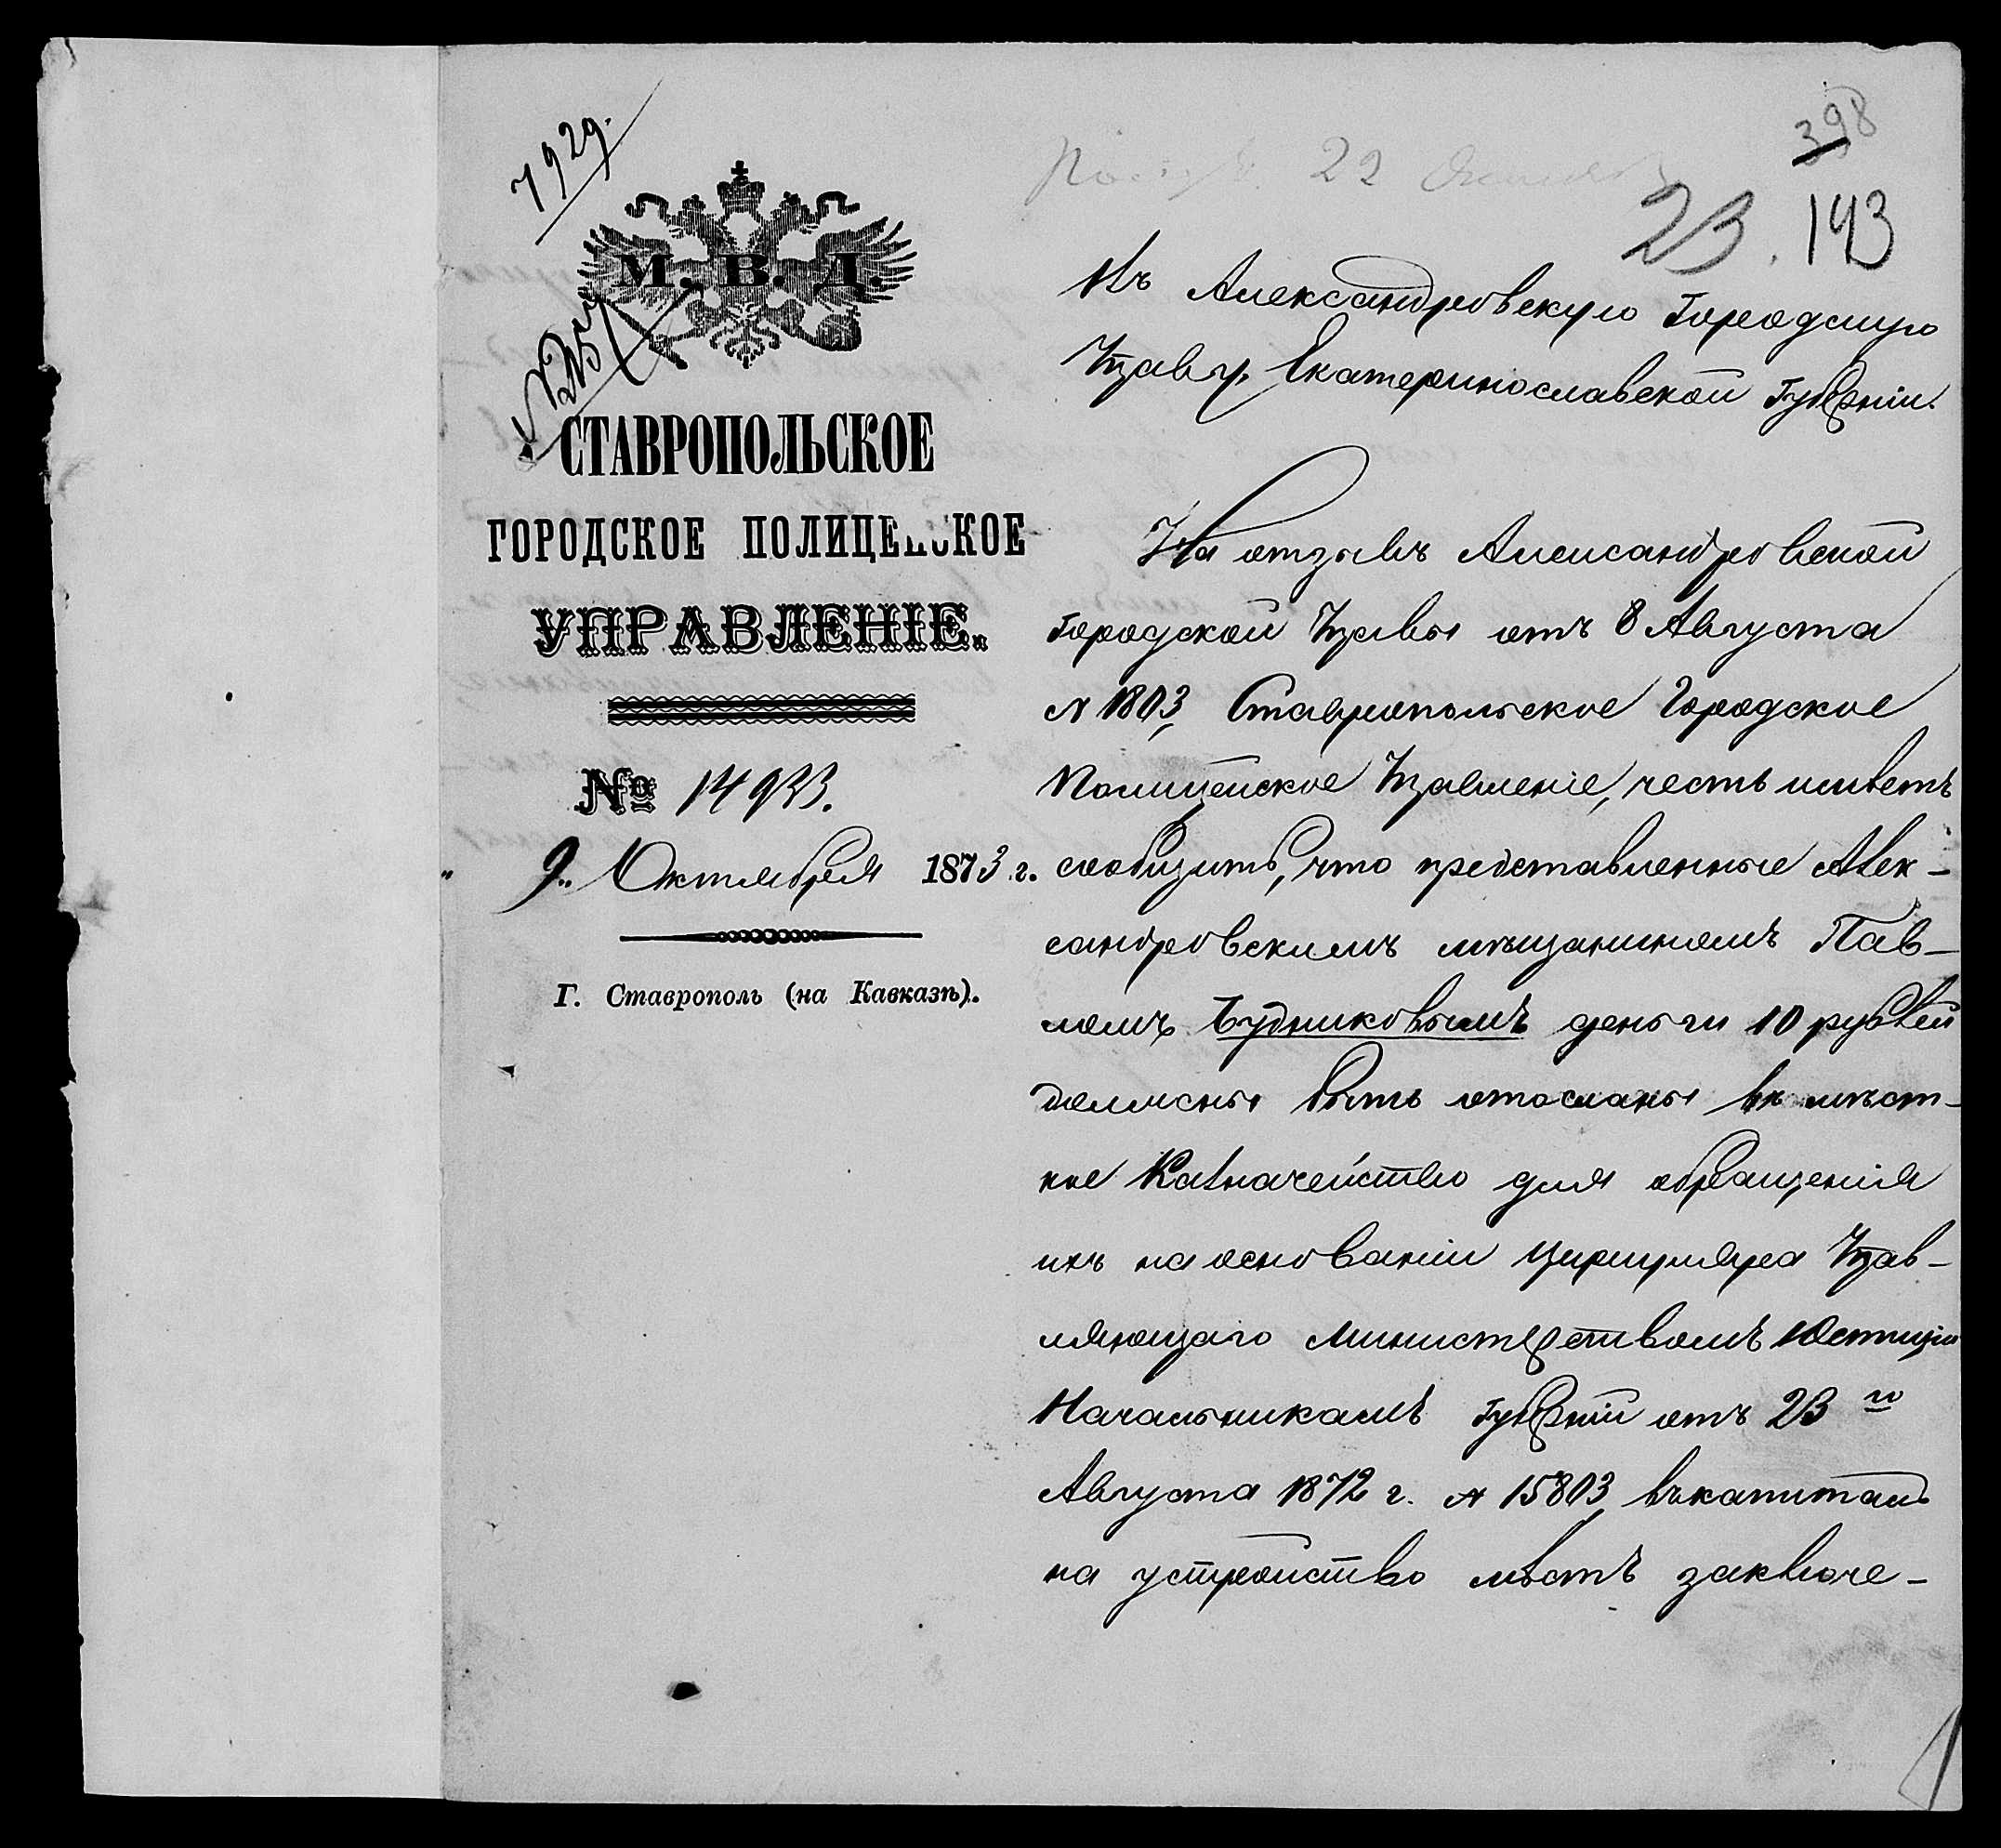 7929.
М. В. Д.
СТАВРОПОЛЬСКОЕ
ГОРОДСКОЕ ПОЛИЦЕЙСКОЕ
УПРАВЛЕНІЕ.
№ 14933.
9 Октября 1873 г.
Г. Ставрополь (на Кавказѣ).
398
22
23. 143
Въ Александровскую Городскую
Управу, Екатеринославской Губерніи.
На отзывъ Александровской
Городской Управы отъ 8 Августа
№ 1803, Ставропольское Городское
Полицейское Управленіе, честь имѣетъ
сообщить, что представленные Алек-
сандровскимъ мѣщаниномъ Пав-
ломъ Будниковымъ деньги 10 рублей
должны быть отосланы въ мѣст-
ное Казначейство для обращенія
ихъ на основаніи циркуляра Управ-
ляющаго Министерствомъ Юстиціи
Начальникамъ Губерній отъ 23 го
Августа 1872 г. № 15803, въ капиталъ
на устройство мѣстъ заключе-